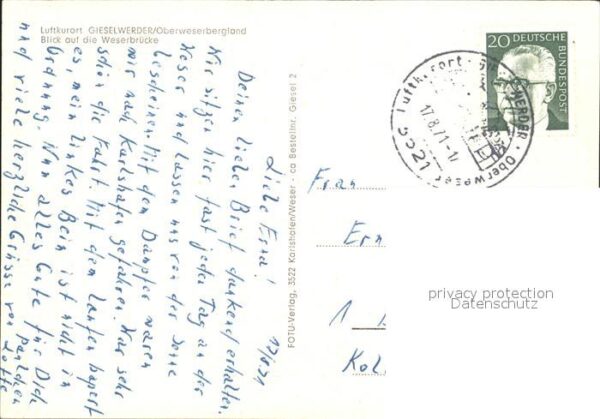 Luftkurort GIESELWERDER/Oberweserbergland
Blick auf die Weserbrücke
17/8.71
Liebe Erna!
Deinen lieben Brief dankend erhalten.
Wir sitzen hier fast jeden Tag an der
Weser und lassen uns von der Sonne
bescheinen. Mit dem Dampfer waren
wir nach Karlshafen gefahren. War sehr
schön die Fahrt. Mit dem Laufen hapert
es, mein linkes Bein ist nicht in
Ordnung. Nun alles Gute für Dich
und viele herzliche Grüsse von
Lotte
FOTU-Verlag, 3522 Karlshafen/Weser - ca Bestellnr. Giesel 2
20 DEUTSCHE
BUNDESPOST
Luftkurort
Oberweser
17.8.71-17
3521
Frau
Ern
1
Kol
privacy protection
Datenschutz